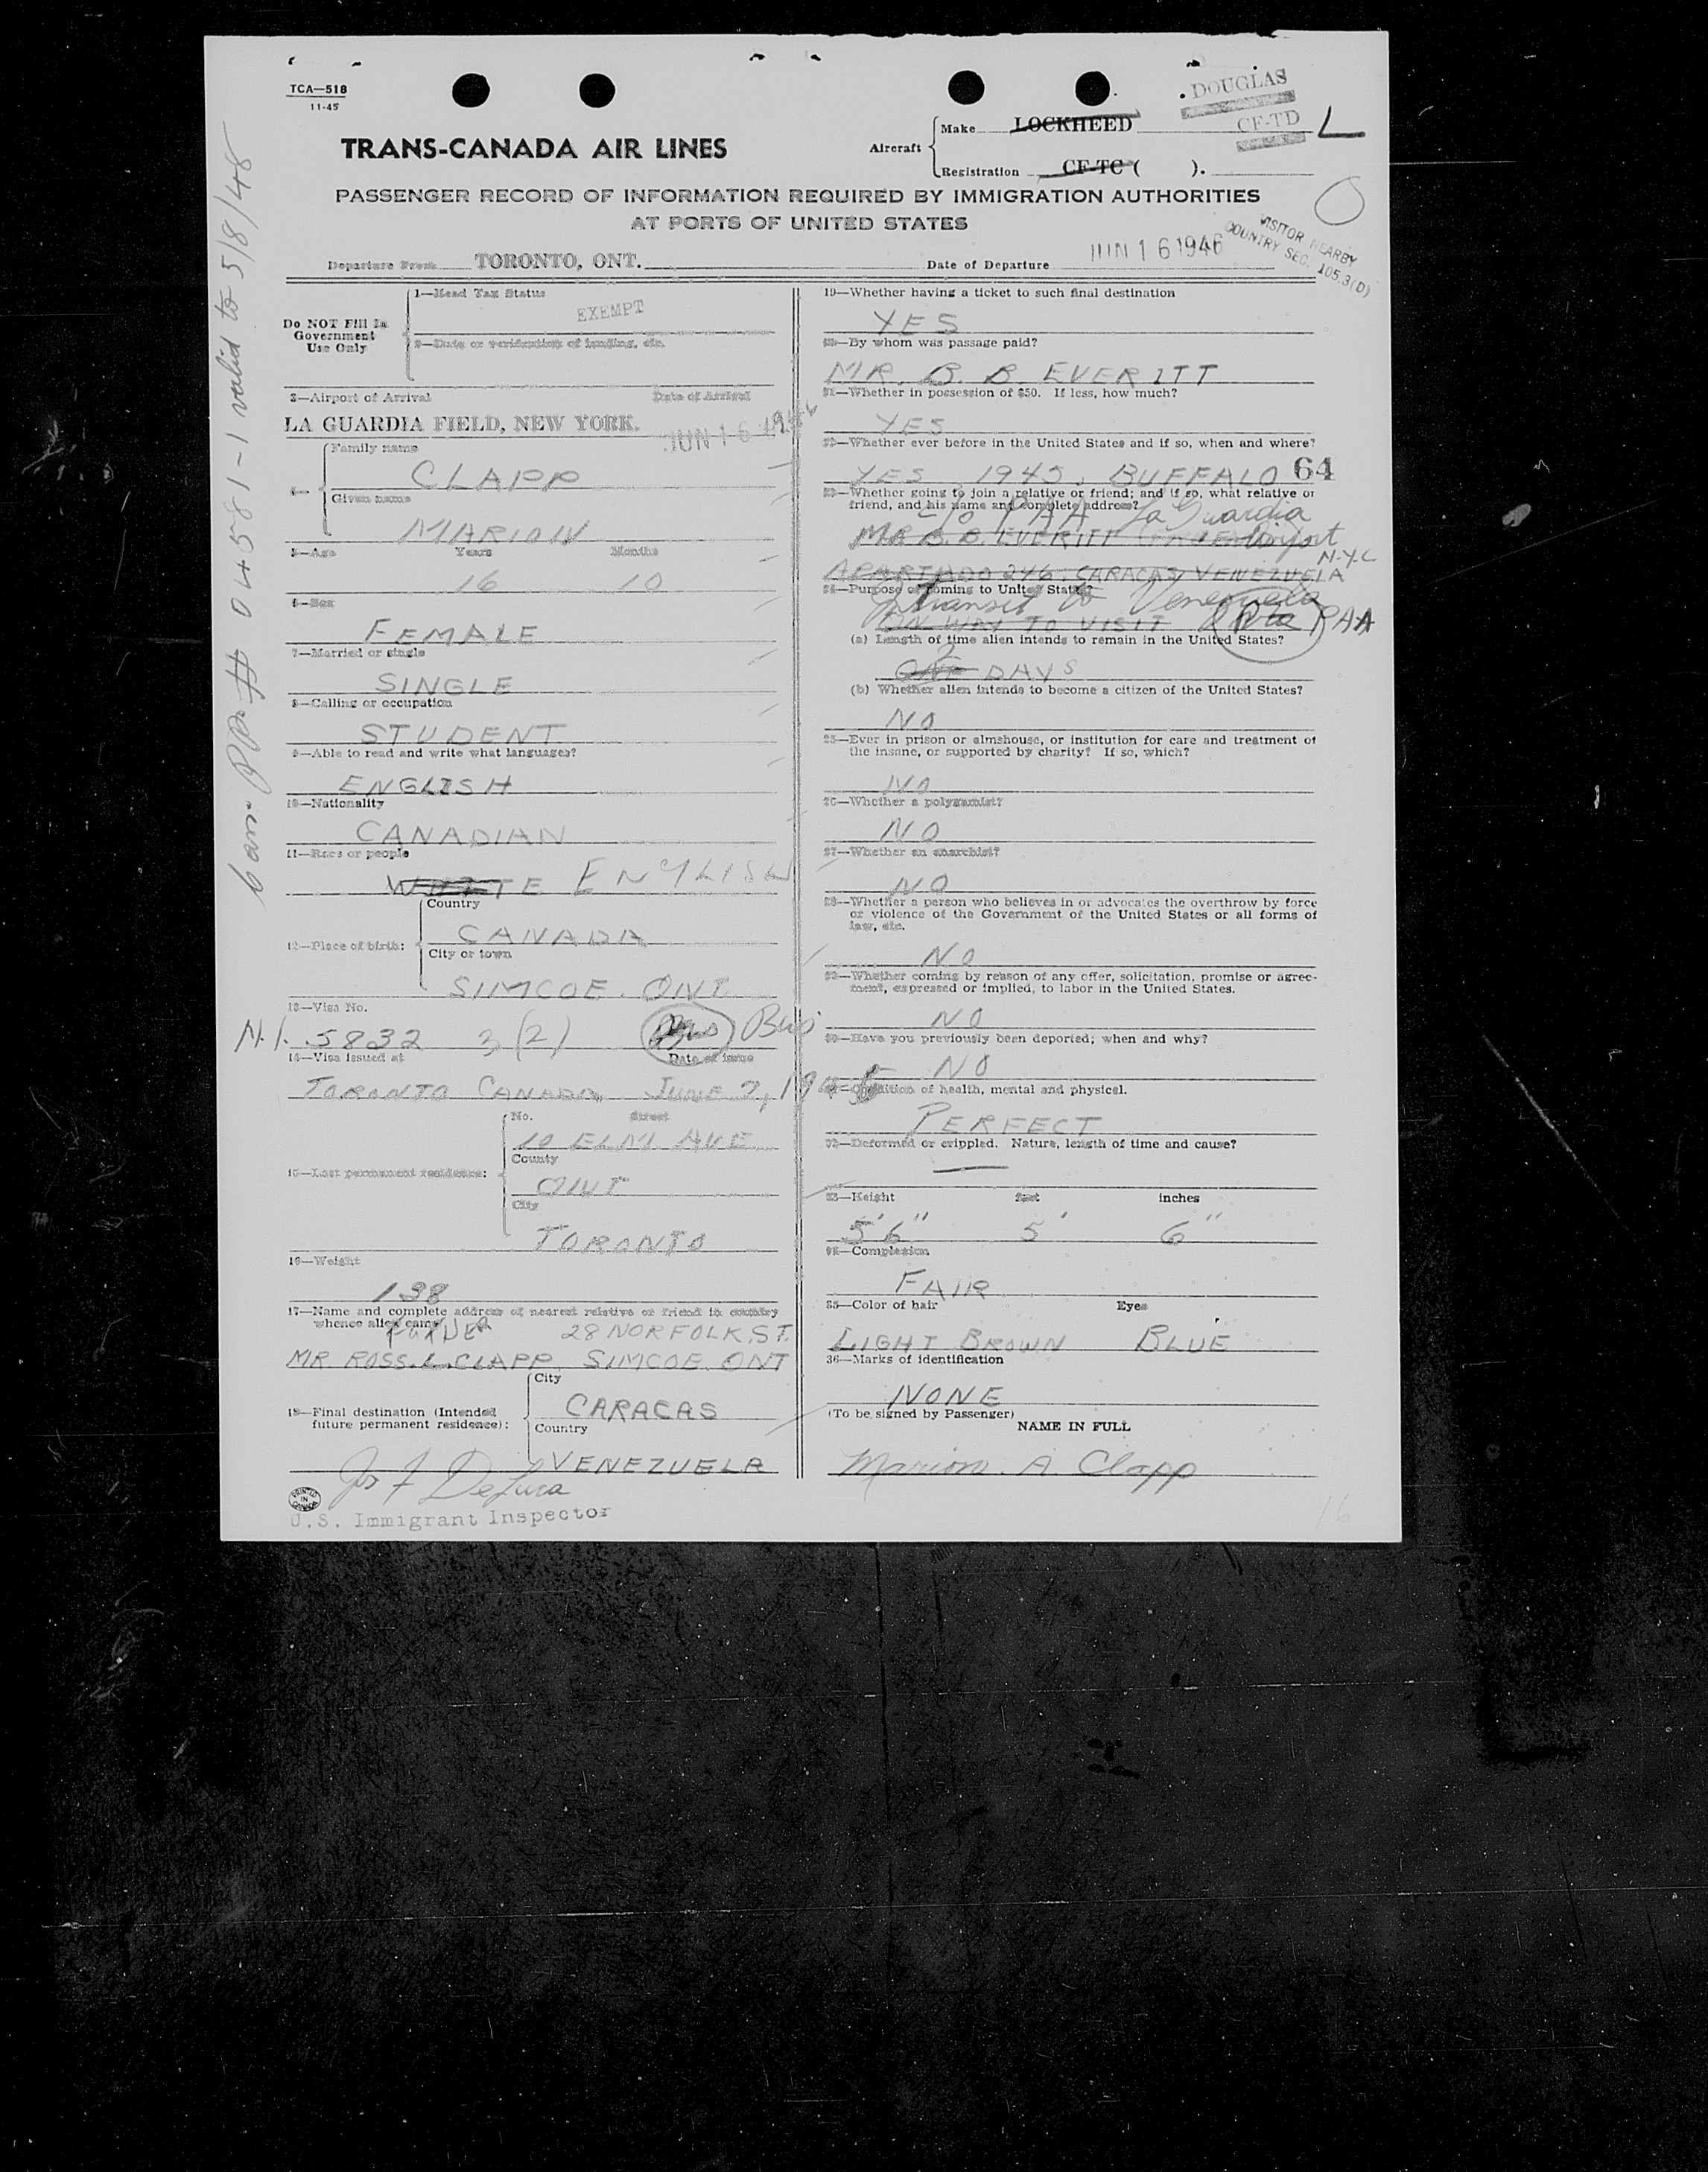 TCA—518
11-45
DOUGLAS
CF-TD L
Aircraft
Make LOCKHEED
Registration CF-TC ( ).
TRANS-CANADA AIR LINES
PASSENGER RECORD OF INFORMATION REQUIRED BY IMMIGRATION AUTHORITIES
AT PORTS OF UNITED STATES
VISITOR NEARBY
COUNTRY SEC. 105.3(D)
Departure From TORONTO, ONT. Date of Departure JUN 16 1946
Can. PP # 04581-1 valid to 5/8/48
Do NOT Fill In
Government
Use Only
1—Head Tax Status
EXEMPT
2—Date or verification of landing, etc.
3—Airport of Arrival Date of Arrival
LA GUARDIA FIELD, NEW YORK. JUN 16 1946
4—
Family name
CLAPP
Given name
MARION
5—Age Years Months
16 10
6—Sex
FEMALE
7—Married or single
SINGLE
8—Calling or occupation
STUDENT
9—Able to read and write what languages?
ENGLISH
10—Nationality
CANADIAN
11—Race or people
WHITE ENGLISH
12—Place of birth:
Country
CANADA
City or town
SIMCOE. ONT.
13—Visa No.
N.I. 5832 3(2) Bus
14—Visa issued at Date of issue
TORONTO CANADA, JUNE 7, 1946
15—Last permanent residence:
No. Street
10 ELM AVE
County
ONT
City
TORONTO
16—Weight
138
17—Name and complete address of nearest relative or friend in country
whence alien came
FATHER 28 NORFOLK. ST.
MR ROSS. L. CLAPP, SIMCOE. ONT
18—Final destination (Intended
future permanent residence):
City
CARACAS
Country
VENEZUELA
Jos F DeLuca
PRINTED IN CANADA
U.S. Immigrant Inspector
19—Whether having a ticket to such final destination
YES
20—By whom was passage paid?
MR. B. B. EVERITT
21—Whether in possession of $50. If less, how much?
YES
22—Whether ever before in the United States and if so, when and where?
YES 1945, BUFFALO 64
23—Whether going to join a relative or friend; and if so, what relative or
friend, and his name and complete address?
c/o PAA La Guardia
MR B. B. EVERITT Airport
N.Y.C
APARTADO 246. CARACAS, VENEZUELA
24—Purpose of coming to United States?
Transit to Venezuela
ON WAY TO VISIT PAA
(a) Length of time alien intends to remain in the United States?
ONE 2 DAYS
(b) Whether alien intends to become a citizen of the United States?
NO
25—Ever in prison or almshouse, or institution for care and treatment of
the insane, or supported by charity? If so, which?
NO
26—Whether a polygamist?
NO
27—Whether an anarchist?
NO
28—Whether a person who believes in or advocates the overthrow by force
or violence of the Government of the United States or all forms of
law, etc.
NO
29—Whether coming by reason of any offer, solicitation, promise or agree-
ment, expressed or implied, to labor in the United States.
NO
30—Have you previously been deported; when and why?
NO
31—Condition of health, mental and physical.
PERFECT
32—Deformed or crippled. Nature, length of time and cause?
—
33—Height feet inches
5'6" 5' 6"
34—Complexion
FAIR
35—Color of hair Eyes
LIGHT BROWN BLUE
36—Marks of identification
NONE
(To be signed by Passenger)
NAME IN FULL
Marion. A. Clapp
16